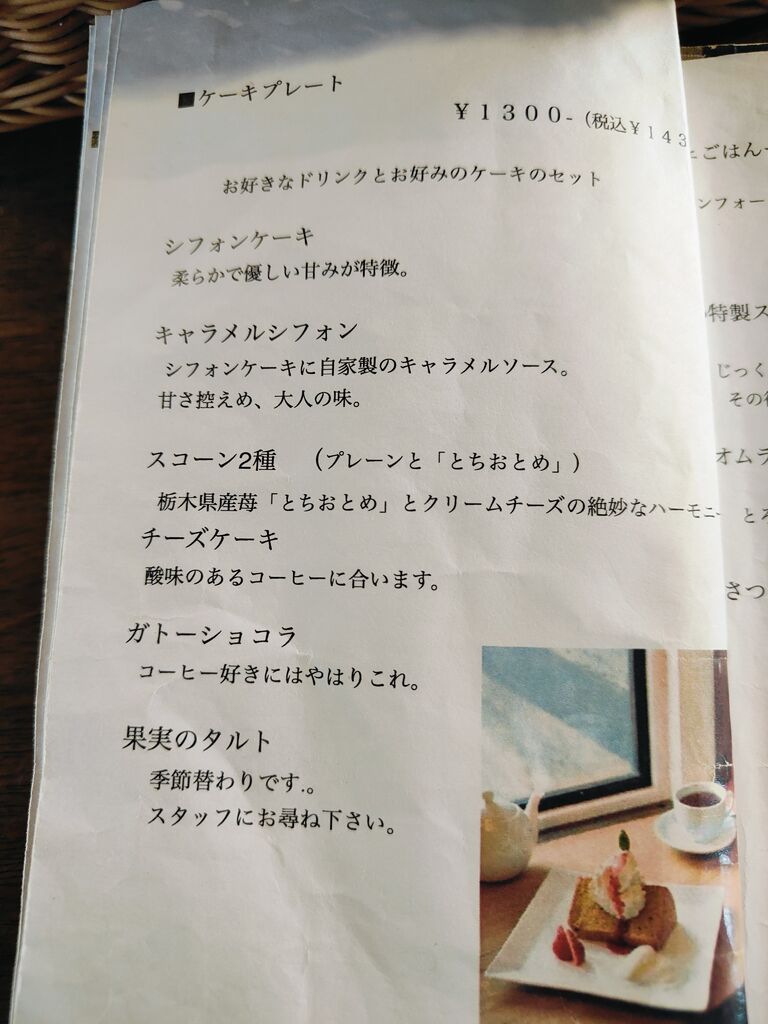 ■ケーキプレート
￥１３００-（税込￥１４３
お好きなドリンクとお好みのケーキのセット
シフォンケーキ
柔らかで優しい甘みが特徴。
キャラメルシフォン
シフォンケーキに自家製のキャラメルソース。
甘さ控えめ、大人の味。
スコーン2種　（プレーンと「とちおとめ」）
栃木県産苺「とちおとめ」とクリームチーズの絶妙なハーモニー
チーズケーキ
酸味のあるコーヒーに合います。
ガトーショコラ
コーヒー好きにはやはりこれ。
果実のタルト
季節替わりです.。
スタッフにお尋ね下さい。
ごはん
ンフォー
特製ス
じっく
その
オムラ
さつ